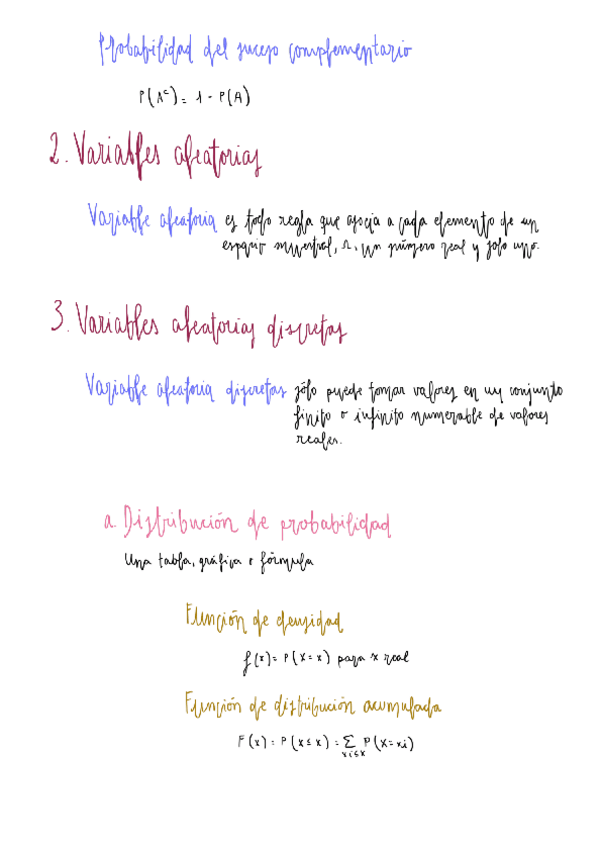 Probabilidad del suceso complementario
P(Aᶜ) = 1 - P(A)
2. Variables aleatorias
Variable aleatoria es toda regla que asocia a cada elemento de un
espacio muestral, Ω, un número real y solo uno.
3. Variables aleatorias discretas
Variable aleatoria discretas sólo puede tomar valores en un conjunto
finito o infinito numerable de valores
reales.
a. Distribución de probabilidad
Una tabla, gráfica o fórmula
Función de densidad
f(x) = P(X = x) para x real
Función de distribución acumulada
F(x) = P(X ≤ x) = Σ P(X = xi)
xi ≤ x